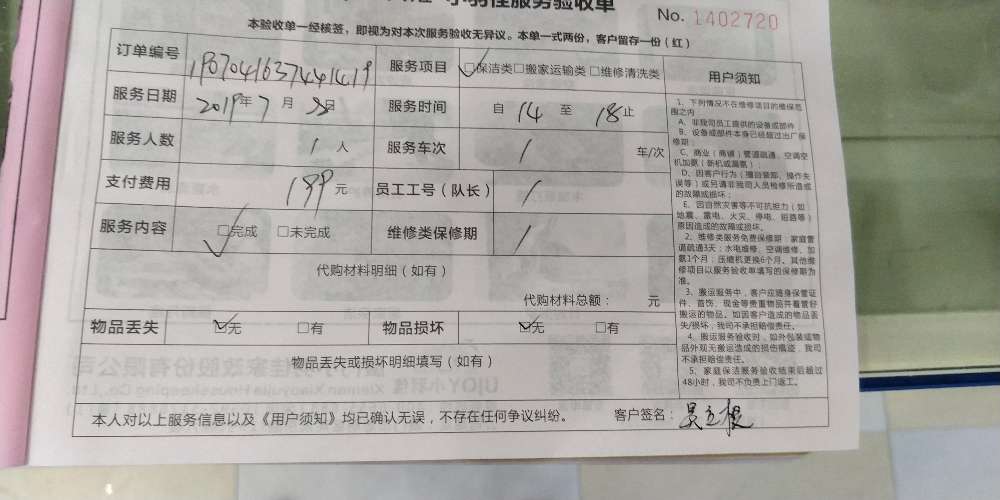 小羽佳服务验收单
No. 1402720
本验收单一经核签，即视为对本次服务验收无异议。本单一式两份，客户留存一份（红）
订单编号 服务项目 ☑保洁类□搬家运输类□维修清洗类
服务日期 2019年7月 日 服务时间 自 14 至 18止
服务人数 1人 服务车次 / 车/次
支付费用 199元 员工工号（队长） /
服务内容 ☑完成 □未完成 维修类保修期 /
代购材料明细（如有）
代购材料总额： 元
物品丢失 ☑无 □有 物品损坏 ☑无 □有
物品丢失或损坏明细填写（如有）
本人对以上服务信息以及《用户须知》均已确认无误，不存在任何争议纠纷。 客户签名：
用户须知
1、下列情况不在维修项目的维保范
围之内
A、非我司员工提供的设备或部件
B、设备或部件本身已经超过出厂保
修期；
C、商业（商铺）管道疏通、空调空
机加氨（新机或漏氨）；
D、因客户行为（擅自装卸、操作失
误等）或另请非我司人员维修所造成
的故障或损坏；
E、因自然灾害等不可抗拒力（如
地震、雷电、火灾、停电、短路等）
原因造成的故障或损坏。
2、维修类服务免费保修期：家庭管
道疏通3天；水电维修、空调维修、加
氨1个月；压缩机更换6个月。其他维
修项目以服务验收单填写的保修期为
准。
3、搬运服务中，客户应随身保管证
件、首饰、现金等贵重物品并看管好
搬运的物品。如因客户造成的物品丢
失/损坏，我司不承担赔偿责任。
4、搬运服务验收时，如外包装或物
品外观无搬运造成的损伤痕迹，我司
不承担赔偿责任。
5、家庭保洁服务验收结束后超过
48小时，我司不负责上门返工。